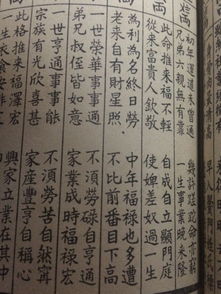 兩
初年運道未曾通 幾許蹉跎命亦窮
兄弟六親無有靠 一生事業晚來隆
兩
此命推來福不輕 自成自立顯門庭
從來富貴人欽敬 使婢差奴過一生
為利為名終日勞 中年福祿也多遭
老來自有財星照 不比前番目下高
一世榮華事事通 不須勞碌自亨通
弟兄叔侄皆如意 家業成時福祿宏
一世亨通事事能 不須勞苦自然甯
宗族有光欣喜甚 家產豐亨自稱心
此格推來福澤宏 興家立業在其中
一生衣食安排定